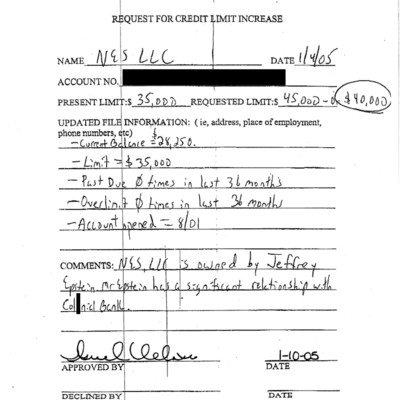 REQUEST FOR CREDIT LIMIT INCREASE
NAME NES LLC DATE 1/4/05
ACCOUNT NO.
PRESENT LIMIT:$ 35,000 REQUESTED LIMIT:$ 45,000 - or $40,000
UPDATED FILE INFORMATION: ( ie, address, place of employment,
phone numbers, etc)
- Current Balance = $28,250.
- Limit = $35,000
- Past Due 0 times in last 36 months
- Overlimit 0 times in last 36 months
- Account opened = 8/01
COMMENTS: NES, LLC is owned by Jeffrey
Epstein. Mr Epstein has a significant relationship with
Colonial Bank.
1-10-05
APPROVED BY DATE
DECLINED BY DATE